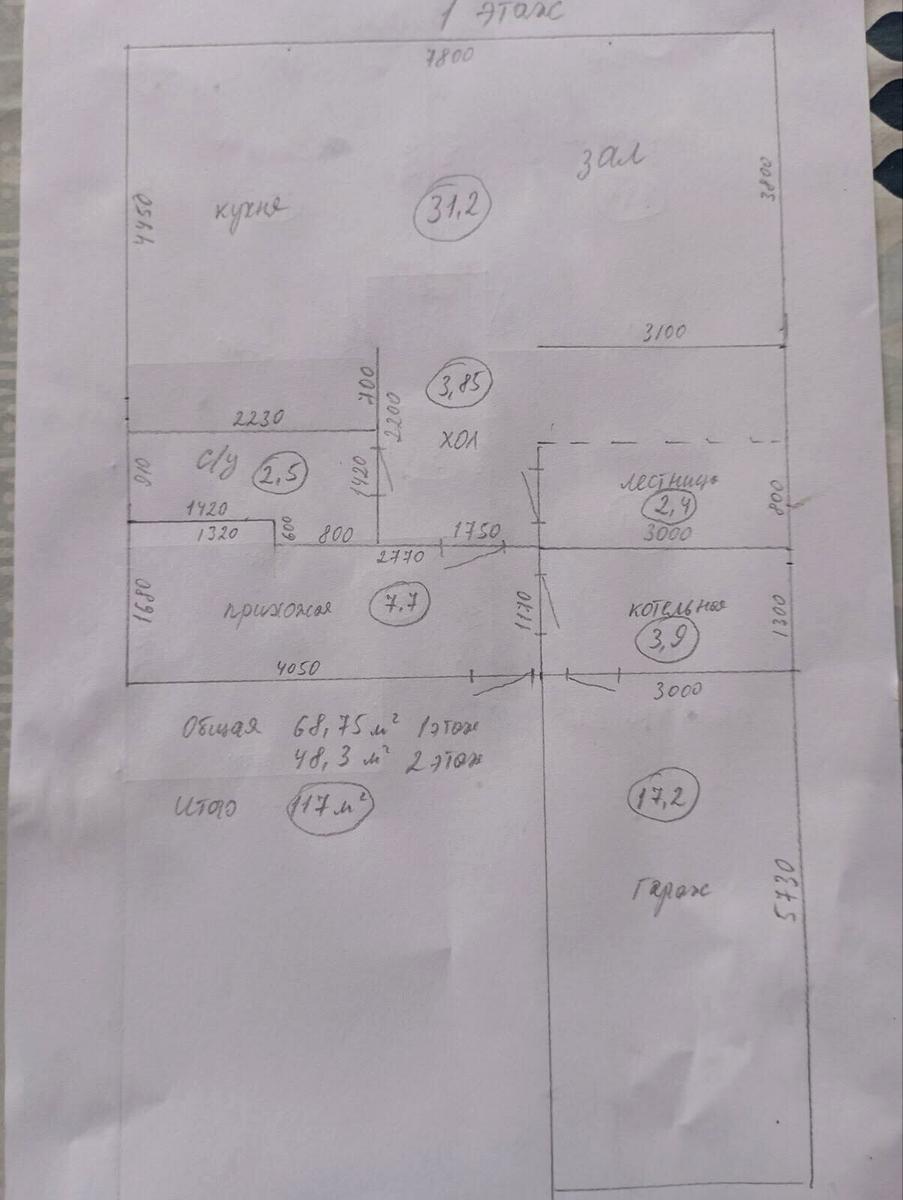 1 этаж
7800
зал
3800
кухня
31,2
4450
3100
3,85
700
2200
2230
хол
с/у
2,5
910
1420
лестница
2,4
800
3000
1420
1320
600
800
1750
2770
1680
прихожая
7,7
1170
котельная
3,9
1300
4050
3000
Общая 68,75 м² 1 этаж
48,3 м² 2 этаж
Итого 117 м²
17,2
Гараж
5730